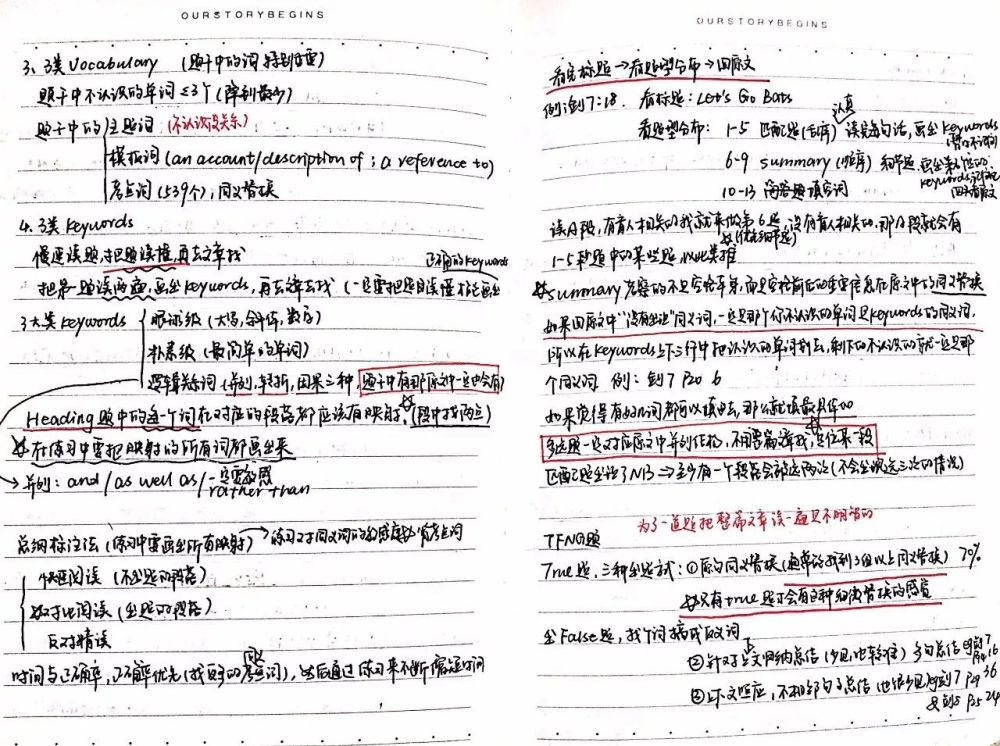 OURSTORYBEGINS
3、3类Vocabulary (题干中的词特别重要)
题干中不认识的单词≤3个
题干中的 主题词 (不认识没关系)
模板词 (an account/description of ; a reference to)
考点词 (539个), 同义替换
4. 3类Keywords
慢速读题,把题读懂,再去文章找
正确的keywords
把第一题读两遍,画出keywords,再去文章去找 (一定要把题目读懂才能画出
3大类keywords 眼球级 (大写,斜体,数字)
朴素级 (最简单的单词)
逻辑关系词 (并列,转折,因果三种,题干中有那原文中一定也会有)
Heading题中的每一个词在对应的段落都应该有映射 (段中找两点)
在练习中需把映射的所有词都画出来
并列: and / as well as / 一定要敏感
rather than
总纲标注法 (练习中需画出所有映射) → 练习对同义词的敏感度,背考点词
快速阅读 (不出题的段落)
对比阅读 (出题的段落)
反对精读
时间与正确率,正确率优先 (找回的考点词),然后通过练习来不断缩短时间
OURSTORYBEGINS
看完标题→看题型分布→回原文
例:剑7:18. 看标题: Let's Go Bats
认真
看题型分布: 1-5 匹配题(乱序) 读完每句话,画出keywords
6-9 summary (顺序) 细节题,画出
keywords
回去看原文
10-13 简答题填空词
读A段,有盲人相关的我就来做第6题,没有盲人相关的,那A段就会有
(优先细节题)
1-5秒题中的某些题,以此类推
summary考察的不只空格本身,而且空格前后的重要信息在原文中的同义替换
如果回原文中"没有出过"同义词,一定是那个你不认识的单词是keywords的同义词.
所以在keywords上下三行中把认识的单词划去,剩下的不认识的就一定是那
个同义词. 例: 剑7 P20 6
如果觉得有好n词都可以填进去,那么就填最具体的
多选题一定对应原文中并列结构,不用读篇章找,定位某一段
匹配题出现了NB⇒至少有一个段落会被选两次 (不会出现选三次的情况)
为了一道题把整篇文章读一遍是不明智的
TFNG题
True题,三种出题方式: ①原句同义替换 (通常能找到3组以上同义替换) 70%
只有true题才会有这种细微替换的感觉
出False题,找个词搞成反义词
②针对上文归纳总结 (少见,比较难) 多句总结
③上下文呼应,不相邻句子总结 也很少见 例剑7 P29 36